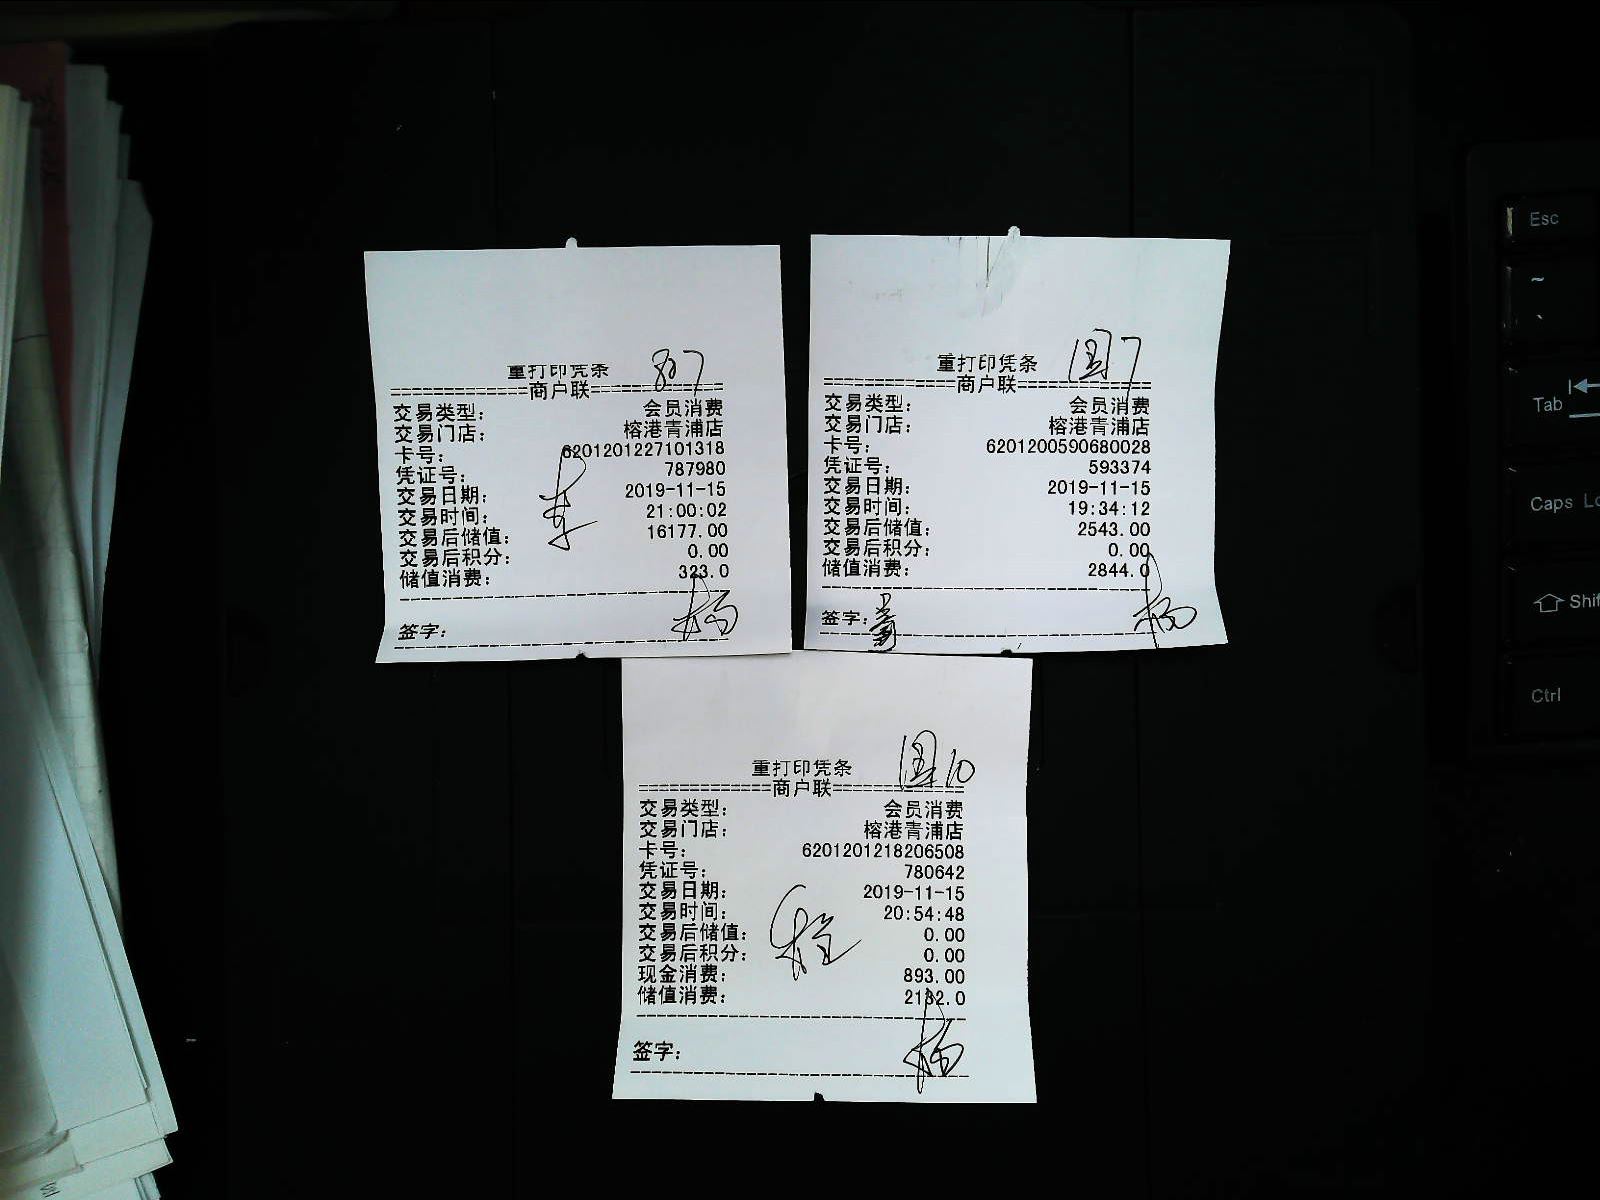 重打印凭条
807
============商户联============
交易类型: 会员消费
交易门店: 榕港青浦店
卡号: 6201201227101318
凭证号: 787980
交易日期: 2019-11-15
交易时间: 21:00:02
交易后储值: 16177.00
交易后积分: 0.00
储值消费: 323.0
李
签字:
杨
重打印凭条
国7
============商户联============
交易类型: 会员消费
交易门店: 榕港青浦店
卡号: 6201200590680028
凭证号: 593374
交易日期: 2019-11-15
交易时间: 19:34:12
交易后储值: 2543.00
交易后积分: 0.00
储值消费: 2844.0
签字:
杨
重打印凭条
国10
============商户联============
交易类型: 会员消费
交易门店: 榕港青浦店
卡号: 6201201218206508
凭证号: 780642
交易日期: 2019-11-15
交易时间: 20:54:48
交易后储值: 0.00
交易后积分: 0.00
现金消费: 893.00
储值消费: 2132.0
程
签字:
杨
Esc
~
`
Tab
Caps Lo
Shif
Ctrl